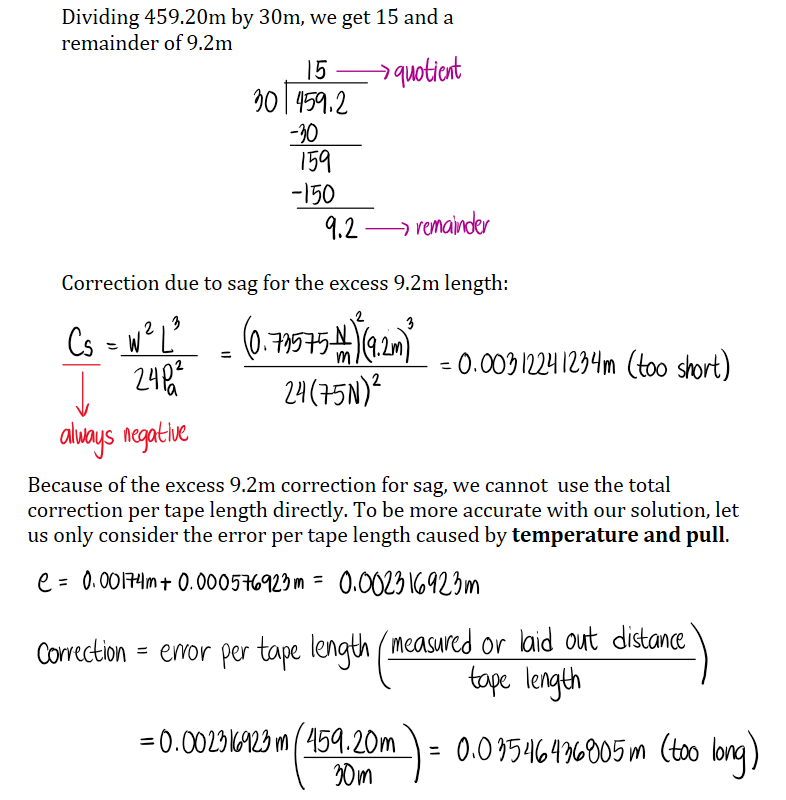 Dividing 459.20m by 30m, we get 15 and a
remainder of 9.2m
15 → quotient
30 | 459.2
-30
159
-150
9.2 → remainder
Correction due to sag for the excess 9.2m length:
Cs = w² L³ / 24Pa² = (0.73575 N/m)² (9.2m)³ / 24(75N)² = 0.00312241234m (too short)
always negative
Because of the excess 9.2m correction for sag, we cannot use the total
correction per tape length directly. To be more accurate with our solution, let
us only consider the error per tape length caused by temperature and pull.
e = 0.00174m + 0.000576923m = 0.002316923m
Correction = error per tape length (measured or laid out distance / tape length)
= 0.002316923m (459.20m / 30m) = 0.03546436805m (too long)